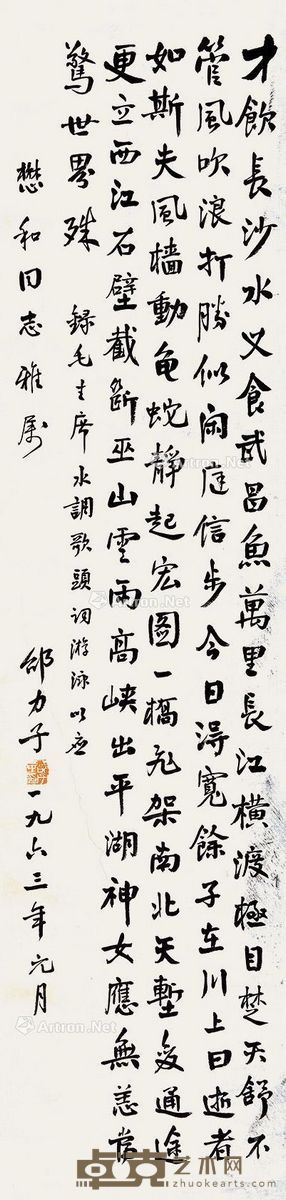 才飲長沙水又食武昌魚萬里長江橫渡極目楚天舒不
管風吹浪打勝似閒庭信步今日得寬餘子在川上曰逝者
如斯夫風檣動龜蛇靜起宏圖一橋飛架南北天塹變通途
更立西江石壁截斷巫山雲雨高峽出平湖神女應無恙當
驚世界殊
錄毛主席水調歌頭詞游泳以应
懋和同志雅屬
邵力子
一九六三年元月
Artron.Net
Artron.Net
Artron.Net
Artron.Net
卓克艺术网
www.zhuokearts.com